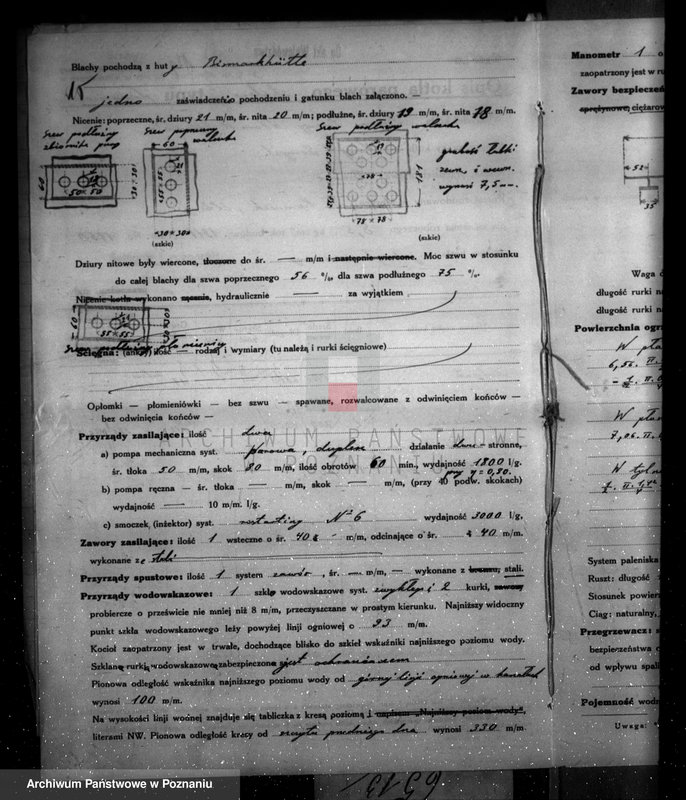 Blachy pochodzą z huty Bismarkhütte
jedno zaświadczenie o pochodzeniu i gatunku blach załączono. —
Nicenie: poprzeczne, śr. dziury 21 m/m, śr. nita 20 m/m; podłużne, śr. dziury 19 m/m, śr. nita 18 m/m.
Szew podłużny
zbiornika pary
Szew poprzeczny
walczaka
Szew podłużny walczaka
grubość łubki
zewn. i wewn.
wynosi 7,5
60
50 50
30 30
60
55 55
30 30
(szkic)
78
181
78 78
(szkic)
Dziury nitowe były wiercone, tłoczone do śr. — m/m i następnie wiercone. Moc szwu w stosunku
do całej blachy dla szwa poprzecznego 56 % dla szwa podłużnego 75 %.
Nicenie kotła wykonano ręcznie, hydraulicznie — za wyjątkiem
60
55 55
Szew podłużny
Ścięgna: (ankry) ilość — rodzaj i wymiary (tu należą i rurki ścięgniowe)
Opłomki — płomieniówki — bez szwu — spawane, rozwalcowane z odwinięciem końców —
bez odwinięcia końców —
Przyrządy zasilające: ilość dwa
a) pompa mechaniczna syst. parowa, duplex działanie dwu-stronne,
śr. tłoka 50 m/m, skok 80 m/m, ilość obrotów 60 min., wydajność 1800 l/g.
b) pompa ręczna — śr. tłoka — m/m, skok — m/m, (przy 40 podw. skokach)
wydajność — 10 m/m. l/g.
c) smoczek (inżektor) syst. restarting № 6 wydajność 3000 l/g,
Zawory zasilające: ilość 1 wsteczne o śr. 40 m/m, odcinające o śr. 40 m/m.
wykonane ze stali
Przyrządy spustowe: ilość 1 system zawór, śr. — m/m, — wykonane z bronzu, stali.
Przyrządy wodowskazowe: 1 szkło wodowskazowe syst. zwykłego i 2 kurki, zawory
probiercze o prześwicie nie mniej niż 8 m/m, przeczyszczane w prostym kierunku. Najniższy widoczny
punkt szkła wodowskazowego leży powyżej linji ogniowej o 93 m/m.
Kocioł zaopatrzony jest w trwałe, dochodzące blisko do szkieł wskaźniki najniższego poziomu wody.
Szklana rurka wodowskazowa zabezpieczona jest ochraniaczem
Pionowa odległość wskaźnika najniższego poziomu wody od górnej linji ogniowej w kanałach
wynosi 100 m/m.
Na wysokości linji wodnej znajduje się tabliczka z kresą poziomą i napisem „Najniższy poziom wody",
literami NW. Pionowa odległość kresy od szczytu przedniego dna wynosi 330 m/m
Manometr 1 o
zaopatrzony jest w ru
Zawory bezpieczeń
sprężynowe, ciężarow
52
35
Waga d
długość rurki na
długość rurki na
Powierzchnia ogrz
W pła
W pło
W tyln
System paleniska
Ruszt: długość
Stosunek powierz
Ciąg: naturalny,
Przegrzewacz: s
bezpieczeństwa o
od wpływu spali
Pojemność wodn
Uwaga:
ARCHIWUM PAŃSTWOWE
W POZNANIU
Archiwum Państwowe w Poznaniu